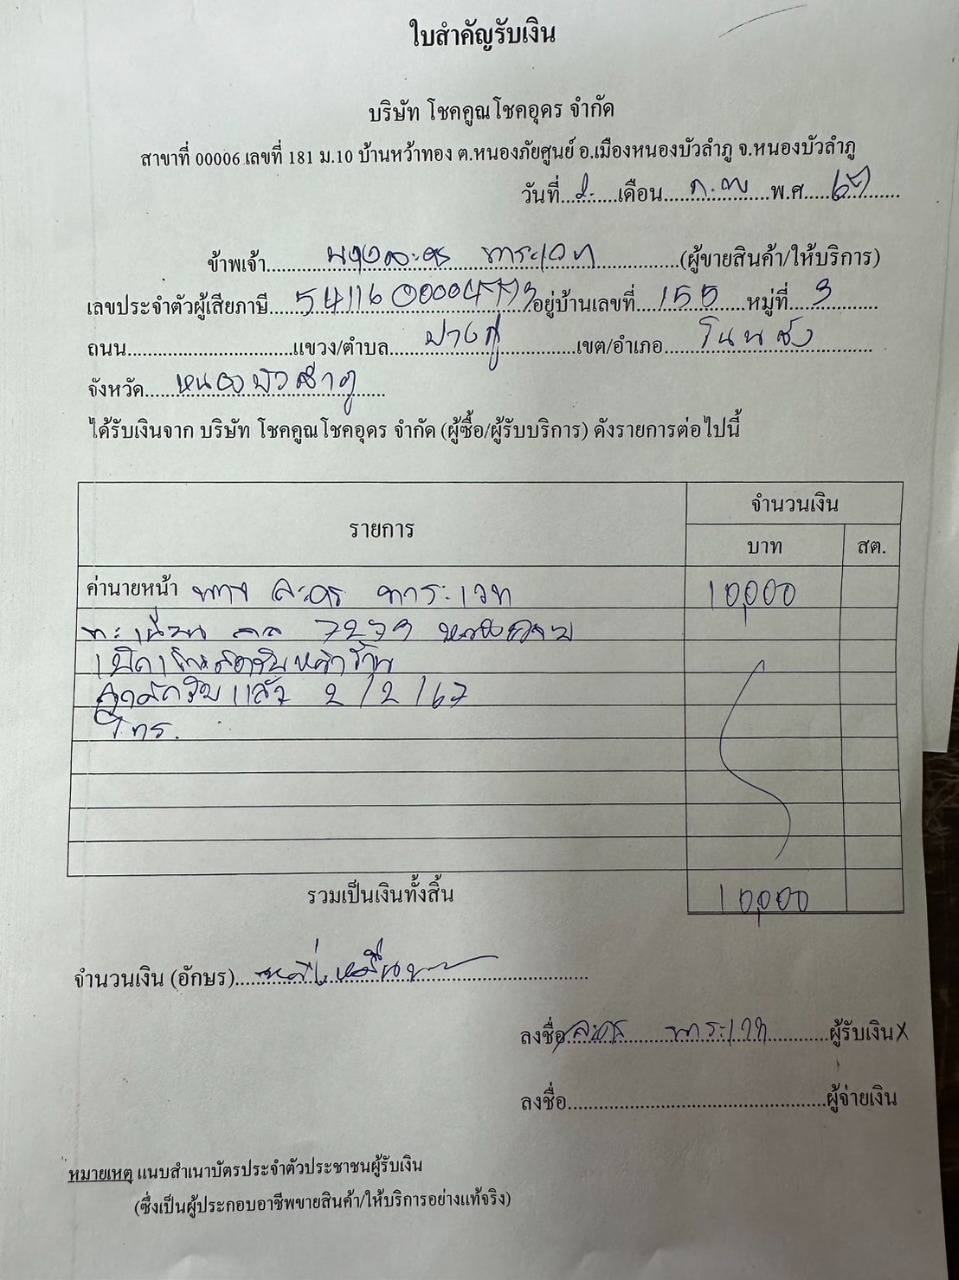 ใบสำคัญรับเงิน
บริษัท โชคคูณโชคอุดร จำกัด
สาขาที่ 00006 เลขที่ 181 ม.10 บ้านหว้าทอง ต.หนองภัยศูนย์ อ.เมืองหนองบัวลำภู จ.หนองบัวลำภู
วันที่ 2 เดือน ก.พ พ.ศ 67
ข้าพเจ้า นางละคร (ผู้ขายสินค้า/ให้บริการ)
เลขประจำตัวผู้เสียภาษี อยู่บ้านเลขที่ 155 หมู่ที่ 3
ถนน แขวง/ตำบล ปางกู่ เขต/อำเภอ โนนสัง
จังหวัด หนองบัวลำภู
ได้รับเงินจาก บริษัท โชคคูณโชคอุดร จำกัด (ผู้ซื้อ/ผู้รับบริการ) ดังรายการต่อไปนี้
รายการ จำนวนเงิน
บาท สต.
ค่านายหน้า นาง ละคร 10,000
ทะเบียน 7279
ตัดสดรับหน้าร้าน
แล้ว 2/2/67
โทร.
รวมเป็นเงินทั้งสิ้น 10,000
จำนวนเงิน (อักษร) หนึ่งหมื่น
ลงชื่อ ละคร ผู้รับเงิน X
ลงชื่อ ผู้จ่ายเงิน
หมายเหตุ แนบสำเนาบัตรประจำตัวประชาชนผู้รับเงิน
(ซึ่งเป็นผู้ประกอบอาชีพขายสินค้า/ให้บริการอย่างแท้จริง)